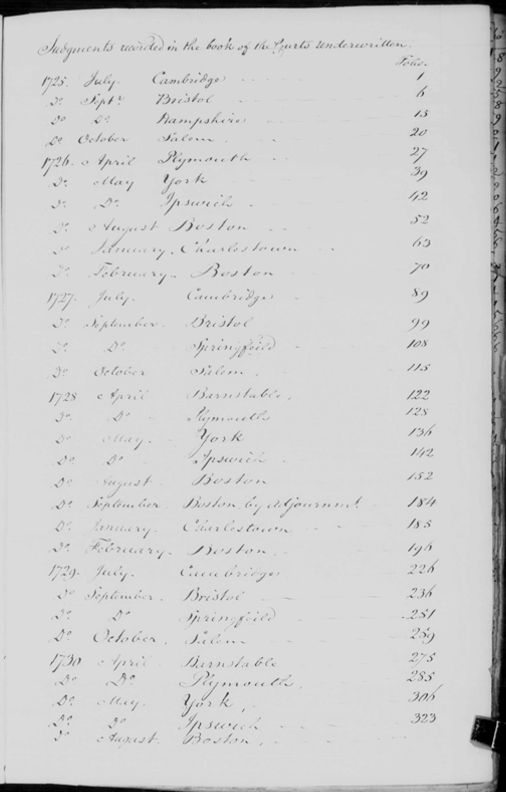 Judgments recorded in the book of the Courts underwritten.
Folio.
1725. July. Cambridge 1
Do. Septr. Bristol 6
Do Do. Hampshire 15
Do October Salem. 20
1726. April Plymouth 27
Do. May York 39
Do. Do. Ipswich 42
Do. August Boston 52
Do January. Charlestown 63
Do. February. Boston 70
1727. July. Cambridge 89
Do. September. Bristol 99
Do. Do. Springfield 108
Do. October Salem. 115
1728 April Barnstable. 122
Do. Do Plymouth 128
Do May. York 136
Do. Do Ipswich 142
Do. August Boston 152
Do. September. Boston by Adjournmt. 184
Do. January. Charlestown 185
Do. February. Boston. 196
1729. July. Cambridge 226
Do September. Bristol 236
Do. Do Springfield 251
Do October. Salem 259
1730 April Barnstable 275
Do. Do. Plymouth. 285
Do. May. York. 306
Do. Do Ipswich 323
Do. August. Boston.